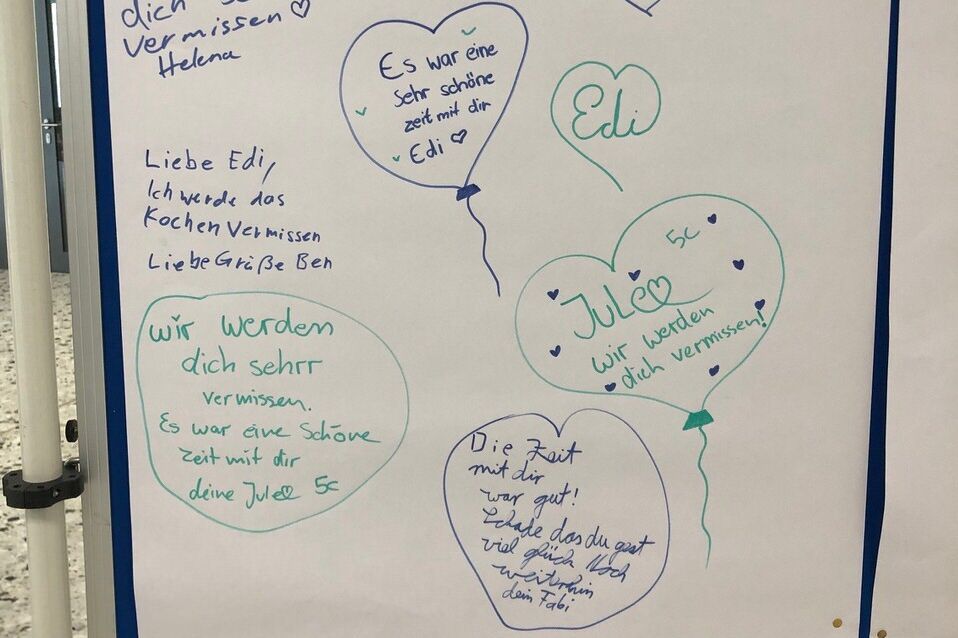 dich
Vermissen ♡
Helena
Es war eine
sehr schöne
zeit mit dir
Edi ♡
Edi
Liebe Edi,
Ich werde das
Kochen Vermissen
Liebe Grüße Ben
5c
Jule♡
wir werden
dich vermissen!
wir werden
dich sehrr
vermissen.
Es war eine Schöne
zeit mit dir
deine Jule♡ 5c
Die Zeit
mit dir
war gut!
Schade das du gest
viel glück Noch
weiterhin
dein Fabi